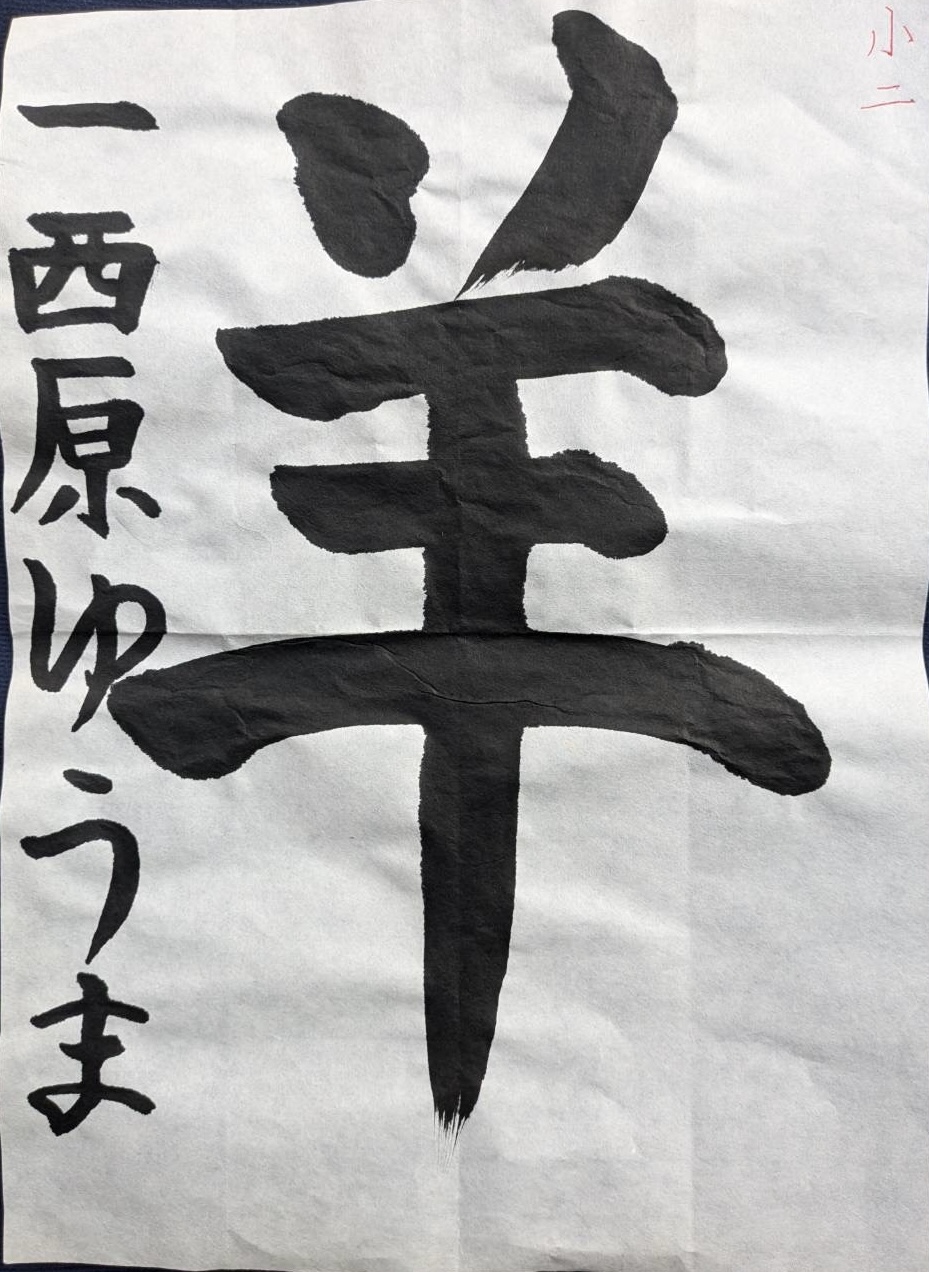 小二
羊
一西原ゆうま